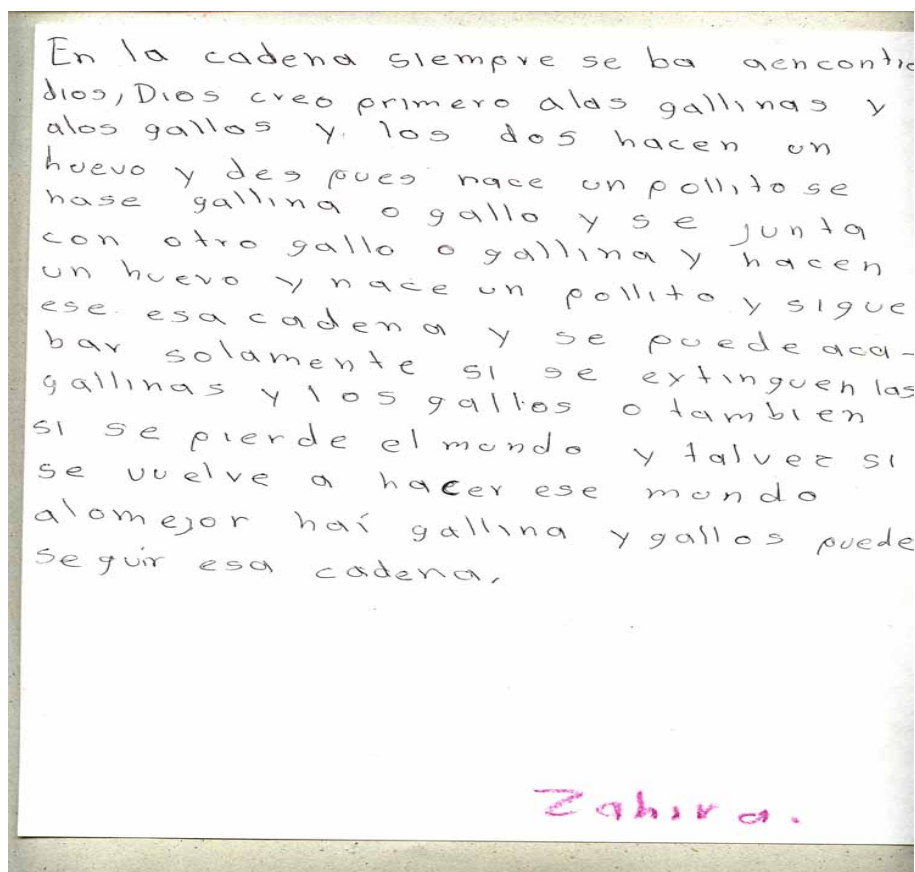 En la cadena siempre se ba aencontra
dios, Dios creo primero alas gallinas y
alos gallos y los dos hacen un
huevo y des pues nace un pollito se
hase gallina o gallo y se junta
con otro gallo o gallina y hacen
un huevo y nace un pollito y sigue
ese esa cadena y se puede aca-
bar solamente si se extinguen las
gallinas y los gallos o tambien
si se pierde el mundo y talvez si
se vuelve a hacer ese mundo
alomejor haí gallina y gallos puede
seguir esa cadena,
Zahira.